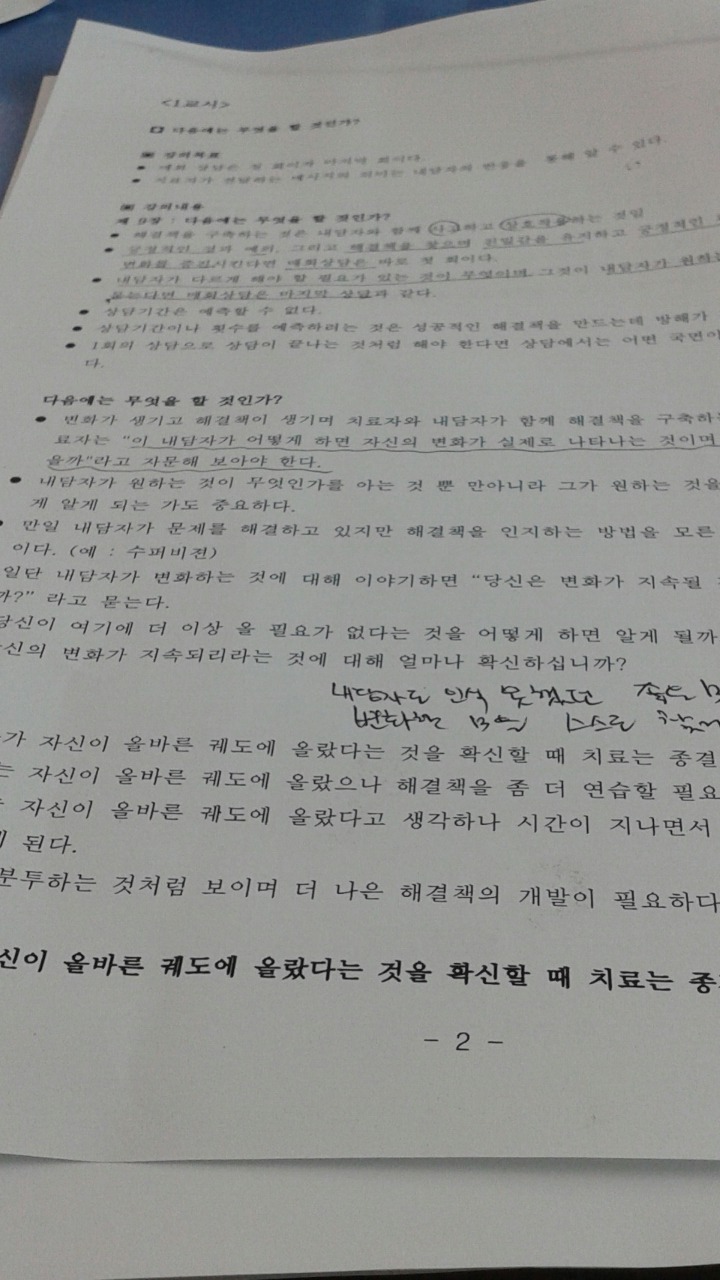 <1교시>
□ 다음에는 무엇을 할 것인가?
▣ 강의목표
● 매회 상담은 첫 회이자 마지막 회이다.
● 치료자가 전달하는 메시지의 의미는 내담자의 반응을 통해 알 수 있다.
▣ 강의내용
제 9장 : 다음에는 무엇을 할 것인가?
● 해결책을 구축하는 것은 내담자와 함께 사고하고 상호작용하는 것임
● 긍정적인 결과 예의, 그리고 해결책을 찾으며 친밀감을 유지하고 긍정적인
변화를 증진시킨다면 매회상담은 바로 첫 회이다.
● 내담자가 다르게 해야 할 필요가 있는 것이 무엇이며 그것이 내담자가 원하는
묻는다면 매회상담은 마지막 상담과 같다.
● 상담기간은 예측할 수 없다.
● 상담기간이나 횟수를 예측하려는 것은 성공적인 해결책을 만드는데 방해가
● 1회의 상담으로 상담이 끝나는 것처럼 해야 한다면 상담에서는 어떤 국면이
다.
다음에는 무엇을 할 것인가?
● 변화가 생기고 해결책이 생기며 치료자와 내담자가 함께 해결책을 구축하
료자는 "이 내담자가 어떻게 하면 자신의 변화가 실제로 나타나는 것이며
을까"라고 자문해 보아야 한다.
● 내담자가 원하는 것이 무엇인가를 아는 것 뿐 만아니라 그가 원하는 것을
게 알게 되는 가도 중요하다.
● 만일 내담자가 문제를 해결하고 있지만 해결책을 인지하는 방법을 모른
이다. (예 : 수퍼비전)
일단 내담자가 변화하는 것에 대해 이야기하면 "당신은 변화가 지속될
까?" 라고 묻는다.
당신이 여기에 더 이상 올 필요가 없다는 것을 어떻게 하면 알게 될까
신의 변화가 지속되리라는 것에 대해 얼마나 확신하십니까?
내담자도 인식 못했던
스스로
가 자신이 올바른 궤도에 올랐다는 것을 확신할 때 치료는 종결
는 자신이 올바른 궤도에 올랐으나 해결책을 좀 더 연습할 필요
자신이 올바른 궤도에 올랐다고 생각하나 시간이 지나면서
게 된다.
분투하는 것처럼 보이며 더 나은 해결책의 개발이 필요하다
신이 올바른 궤도에 올랐다는 것을 확신할 때 치료는 종
- 2 -